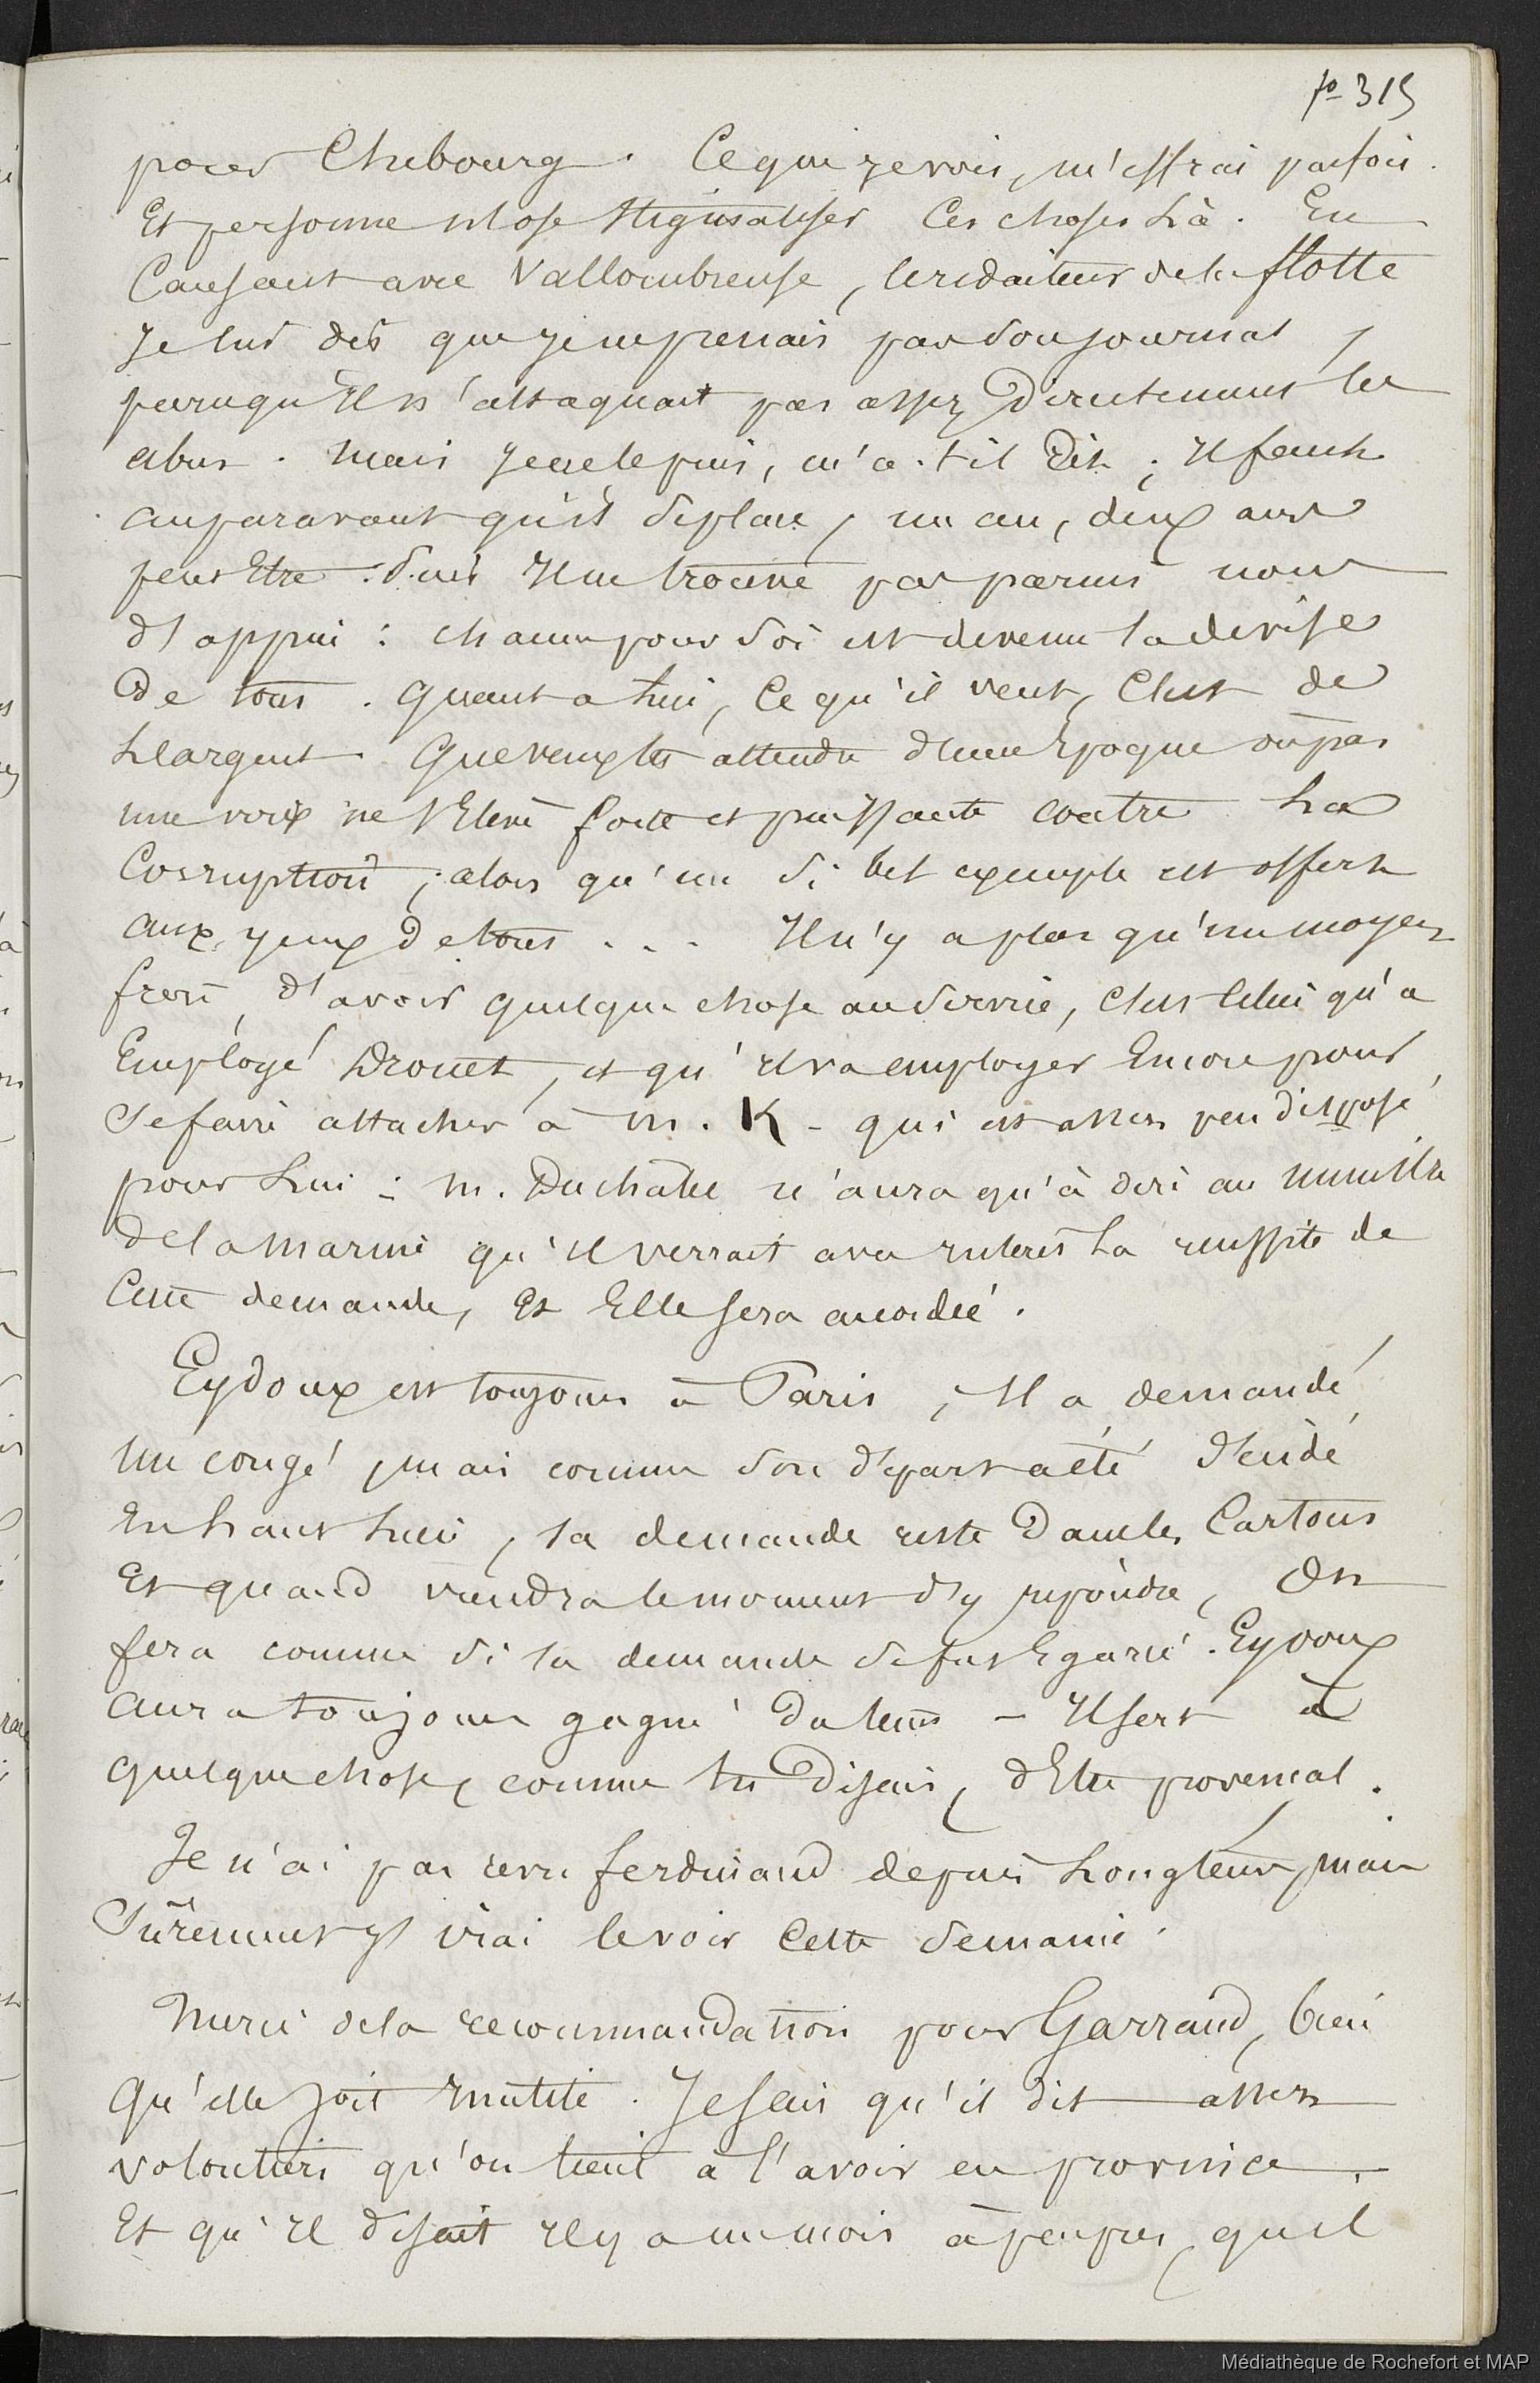 fo 315
pour Chebourg. Ce que je vois, m'effrai parfois.
Et personne n'ose stigmatiser Ces choses Là. En
Causant avec Vallombreuse, le rédacteur de la flotte
Je lui dis que je ne prenais pas son journal,
parce qu'Il n'attaquait pas assez Directement les
abus. Mais Je ne le puis, m'a-t-il Dit ; Il faut
auparavant qu'il se place, un an, deux ans
peut Etre. Puis Il ne trouve pas parmi nous
d'appui : chacun pour soi est devenu la devise
De tous. Quant a Lui, Ce qu'il veut, C'est de
L'argent. Que veux-tu attendre d'une Epoque où pas
une voix ne s'Elève forte et puissante contre La
Corruption, alors qu'un si bel exemple est offert
aux yeux De tous ... Il n'y a plus qu'un moyen
d'avoir quelque chose au service, C'est Celui qu'a
Employé Drouet, et qu'Il va employer Encore pour
se faire attacher à M. K - qui est assez peu disposé
pour Lui : M. Duchatel n'aura qu'à dire au Ministre
De la Marine qu'Il verrait avec interêt La reussite de
Cette demande, Et Elle sera accordée.
Eydoux est toujours à Paris, Il a demandé
Un congé, mais comme son départ a été décidé
En haut Lieu, sa demande reste Dans les Cartons
Et quand viendra le moment d'y repondre, On
fera comme si la demande se fut Egarée. Eydoux
aura toujours gagné du tems - Il sert à
quelque chose, comme tu Disais, d'Etre provencal.
Je n'ai pas revu ferdinand depuis Longtems, mais
Surement J'irai le voir Cette semaine.
Merci de la recommandation pour Garraud, bien
qu'elle soit Inutile. Je sais qu'il dit assez
volontiers qu'on tient à l'avoir en province.
Et qu'Il disait Il y a un mois à peu près, qu'il
Médiathèque de Rochefort et MAP